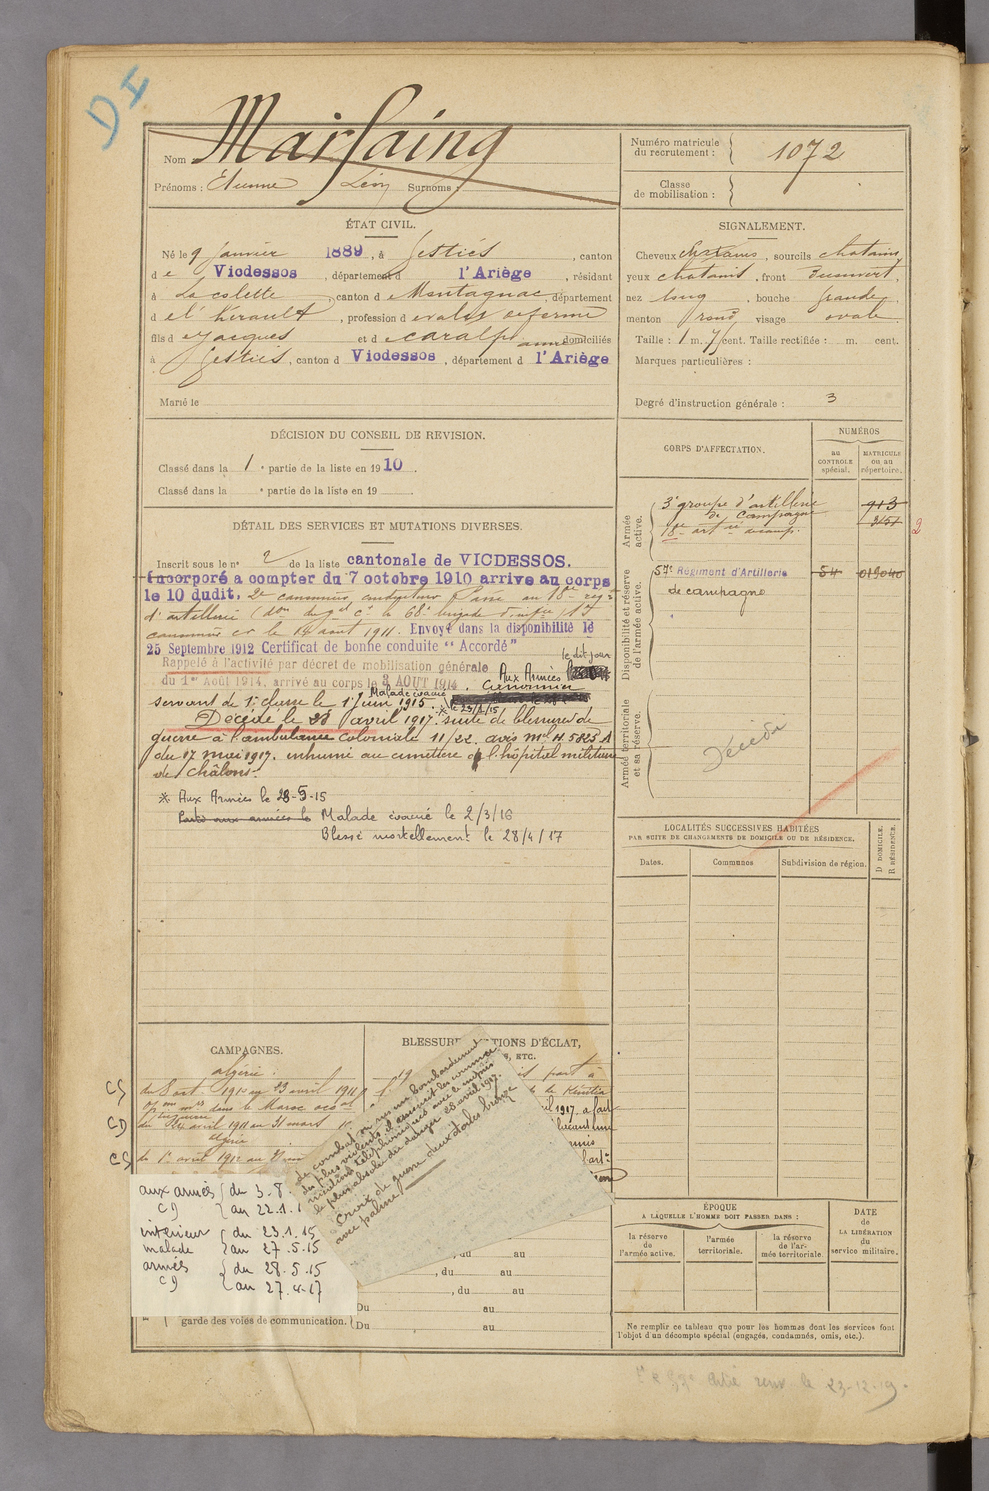 DI
Nom Marfaing
Prénoms : Etienne Léon Surnoms :
Numéro matricule du recrutement : 1072
Classe de mobilisation :
ÉTAT CIVIL.
Né le 9 Janvier 1889, à Gestiès, canton
de Vicdessos, département d l'Ariège, résidant
à La colette, canton d Montagnac, département
d el'hérault, profession d e valet de ferme
fils d e Jacques et d e Caralp anne domiciliés
à Gestiès, canton d Vicdessos, département d l'Ariège
Marié le
SIGNALEMENT.
Cheveux chatains, sourcils chatains
yeux chatains, front découvert,
nez long, bouche grande,
menton rond visage ovale
Taille : 1 m. cent. Taille rectifiée : m. cent.
Marques particulières :
Degré d'instruction générale : 3
DÉCISION DU CONSEIL DE REVISION.
Classé dans la 1 e partie de la liste en 1910.
Classé dans la e partie de la liste en 19 .
DÉTAIL DES SERVICES ET MUTATIONS DIVERSES.
Inscrit sous le n° 2 de la liste cantonale de VICDESSOS.
Incorporé a compter du 7 octobre 1910 arrive au corps
le 10 dudit. 2e canonnier conducteur
d'artillerie
canonnier le 14 août 1911. Envoyé dans la disponibilité le
25 Septembre 1912 Certificat de bonne conduite "Accordé"
le dit jour
Rappelé à l'activité par décret de mobilisation générale
du 1er Août 1914, arrivé au corps le 3 AOUT 1914. Aux Armées
Canonnier
servant de 1e classe le 1 Juin 1915. Malade évacué le 23/1/15
Décédé le 28 avril 1917. suite de blessures de
guerre à l'ambulance coloniale 11/22. avis ml H 5823 A
du 17 mai 1917. inhumé au cimetière de l'hôpital militaire
de Châlons.
* Aux Armées le 28-5-15
Parti aux armées le Malade évacué le 2/3/16
Blessé mortellement le 28/4/17
CORPS D'AFFECTATION.
NUMÉROS
au CONTROLE spécial.
MATRICULE ou au répertoire.
Armée active.
3e groupe d'artillerie de Campagne 913
Disponibilité et réserve de l'armée active.
57e Régiment d'Artillerie 54 019040
de campagne
Armée territoriale et sa réserve.
Décédé
LOCALITÉS SUCCESSIVES HABITÉES
PAR SUITE DE CHANGEMENTS DE DOMICILE OU DE RÉSIDENCE.
Dates.
Communes
Subdivision de région.
D DOMICILE.
R RÉSIDENCE.
CAMPAGNES.
Algérie.
CS du 8 oct. 1910 au 23 avril 1911
dans le Maroc
CD du 24 avril 1911 au 31 mars
Algérie
CS du 1er avril 1912 au
aux armées du 3.8.
CD au 22.1.1
intérieur du 23.1.15
malade au 27.5.15
armées du 28.5.15
CD au 27.4.17
garde des voies de communication. Du au
, du au
, du au
Du au
BLESSURE
TIONS D'ÉCLAT,
, ETC.
de combat où sous un bombardement
des plus violents, il assurait les communica
téléphoniques avec le mépris
le plus absolu du danger 28 avril 1917.
Croix de guerre deux étoiles bronze
avec palme
ÉPOQUE
A LAQUELLE L'HOMME DOIT PASSER DANS :
la réserve de l'armée active.
l'armée territoriale.
la réserve de l'armée territoriale.
DATE de LA LIBÉRATION du service militaire.
Ne remplir ce tableau que pour les hommes dont les services font
l'objet d'un décompte spécial (engagés, condamnés, omis, etc.).
le 23-12-19.